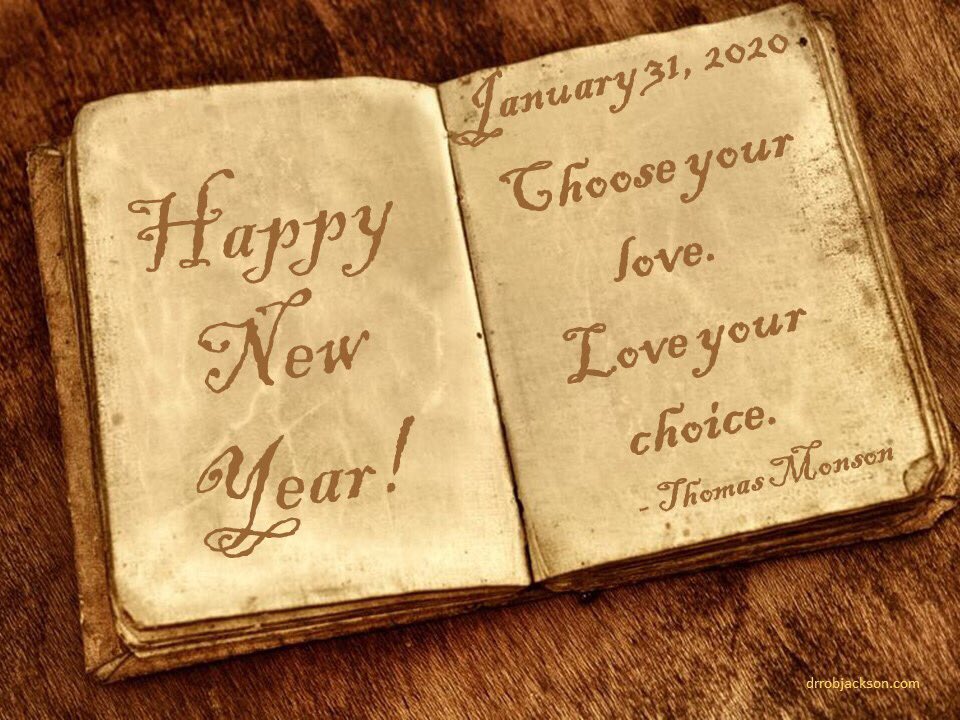 Happy
New
Year!
January 31, 2020
Choose your
love.
Love your
choice.
- Thomas Monson
drrobjackson.com